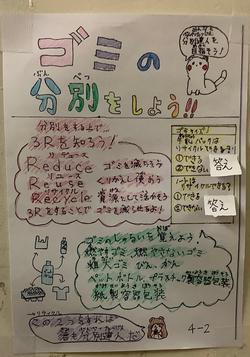 ゴミの
分別をしよう!!
ぶん
べつ
分別名人を
目指そう!
分別をする上で…
3Rを知ろう!
リデュース
Reduce ゴミを減らそう
リユース
Reuse くりかえし使おう
リサイクル
Recycle 資源として活かそう
3Rをすることでゴミを減らせるよ!
ゴミクイズ!
牛乳パックは
リサイクルできる?
①できる
②できない
答え
ノートは
リサイクルできる?
①できる
②できない
答え
ゴミのしゅるいを覚えよう
燃やすゴミ、燃やさないゴミ
粗大ゴミ びん、かん
ペットボトル、プラスチック製容器包装
紙製容器包装
リサイクル
君も分別名人だ!
4-2